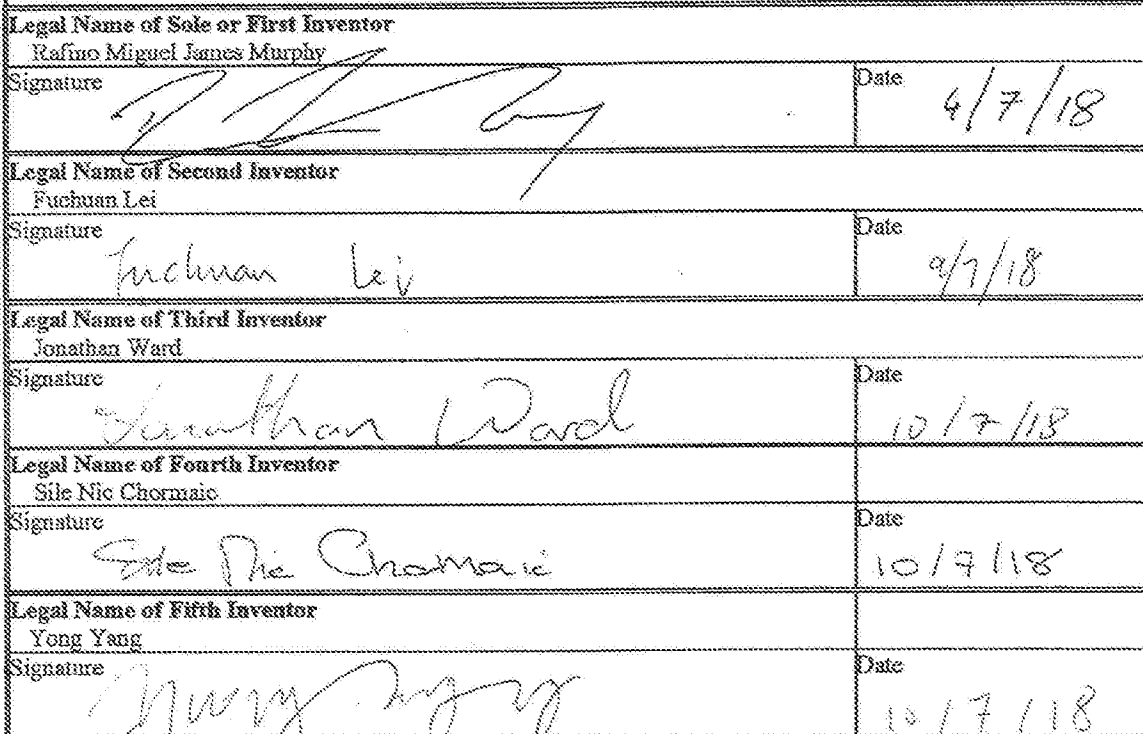 Legal Name of Sole or First Inventor
Rafino Miguel James Murphy
Signature Date 4/7/18
Legal Name of Second Inventor
Fuchuan Lei
Signature Fuchuan Lei Date 9/7/18
Legal Name of Third Inventor
Jonathan Ward
Signature Jonathan Ward Date 10/7/18
Legal Name of Fourth Inventor
Síle Nic Chormaic
Signature Síle Nic Chormaic Date 10/7/18
Legal Name of Fifth Inventor
Yong Yang
Signature Date 10/7/18